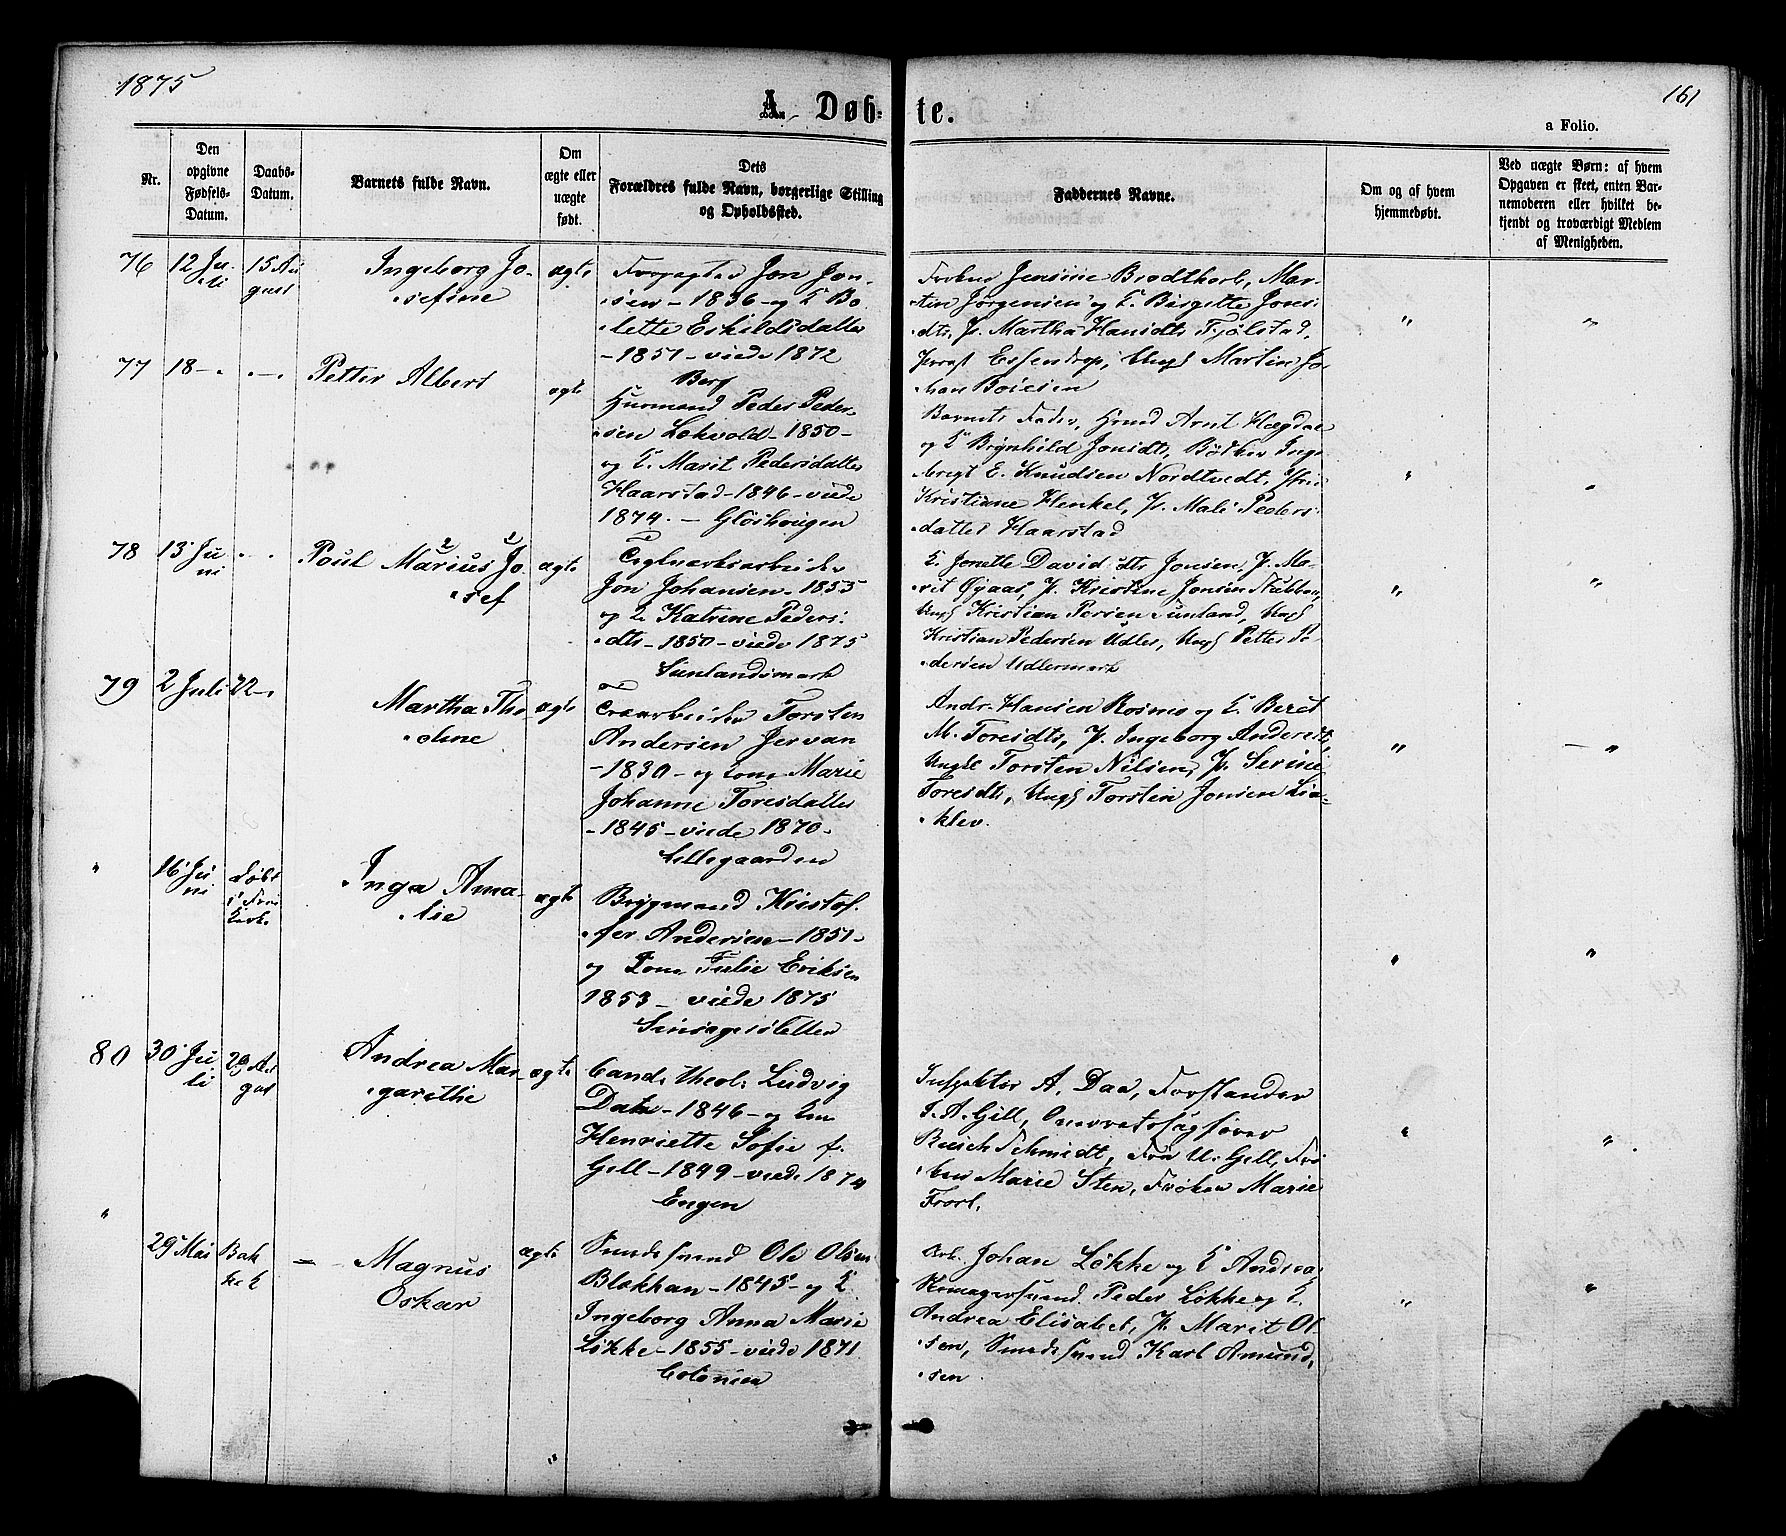 1875
161
A. Døbte.
a Folio.
Nr.
Den opgivne Fødsels-Datum.
Daabs-Datum.
Barnets fulde Navn.
Om ægte eller uægte født.
Dets Forældres fulde Navn, borgerlige Stilling og Opholdssted.
Faddernes Navne.
Om og af hvem hjemmedøbt.
Ved uægte Børn: af hvem Opgaven er skeet, enten Barnemoderen eller hvilket bekjendt og troværdigt Medlem af Menigheden.
76
12 Ju-
li
15 Au
gust
Ingeborg Jo-
sefine
ægte
Forpagter Jon Jon-
sen - 1836 - og E Bo
lette Eskildsdatter
- 1851 - viede 1872
Berg
Frøken Jensine Brodtkorb, Mar-
tin Jørgensen og E. Birgitte Jons-
dtr, P. Martha Hansdtr Fjølstad,
Essendrop, Ungk Martin Jo-
han Boiesen
"
"
77
18 -
Petter Albert
ægte
Husmand Peder Peder-
sen Lokvold - 1850 -
og E. Marit Pedersdatter
Haarstad - 1846 - viede
1874. - Gløshaugen
Barnets Fader, Hmd Arnt Hægdal
og E Brynhild Jonsdtr, Bødker Inge
bregt E. Knudsen Nordtvedt,
Kristiane Henkel, P. Mali Peders-
datter Haarstad
"
"
78
13 Ju
ni
Poul Marius Jo-
sef
ægte
Teglværksarbeider
Jon Johansen - 1853
og E Katrine Peders-
dtr - 1850 - viede 1875
Sunlandsmark
E. Jonette Davidsdtr Jonsen, P. Ma-
rit Øyaas, P. Kristine Jonsen Stubban,
Ungk Kristian Persen Sunland, Ungk
Kristian Pedersen Udler, Ungk Petter Pe-
dersen Udlermark
"
"
79
2 Juli
22 -
Martha Tho-
oline
ægte
Torsten
Andersen Jervan
- 1830 - og Kone Marie
Johanne Toresdatter
- 1845 - viede 1870 -
Lillegaarden
Andr. Hansen Rosmo og E. Beret
M. Toresdtr, P. Ingeborg Andersdt,
Ungk Torsten Nilsen, P. Serine
Toresdtr, Ungk Torstein Jonsen Lia-
klev.
"
- "
"
16 Ju
ni
døbt
i Frue
Kirke
Inga Ama-
lie
ægte
Brygmand Kristof-
fer Andersen - 1851 -
og Kone Julie Eriksen
1853 - viede 1875
"
"
80
30 Ju
li
29 Au
gust
Andrea Mar-
garethe
ægte
Cand. theol. Ludvig
Daae - 1846 - og Kone
Henriette Sofie f.
Gell - 1849 - viede 1874
Engen
Inspektør A. Daa, Forstander
J. A. Gill, Overretssagfører
Busch Schmidt, Fru U. Gell, Frø
ken Marie Sten, Frøken Marie
"
"
"
29 Mai
Bak
ke K
Magnus
Oskar
ægte
Smedesvend Ole Olsen
Blekkan - 1845 - og E
Ingeborg Anna Marie
Løkke - 1855 - viede 1871
Colonien
Arb. Johan Løkke og E Andrea,
Skomagersvend Peder Løkke og E.
Andrea Elisabet, P. Marit Ol-
sen, Smedesvend Karl Amund-
sen.
"
"
"